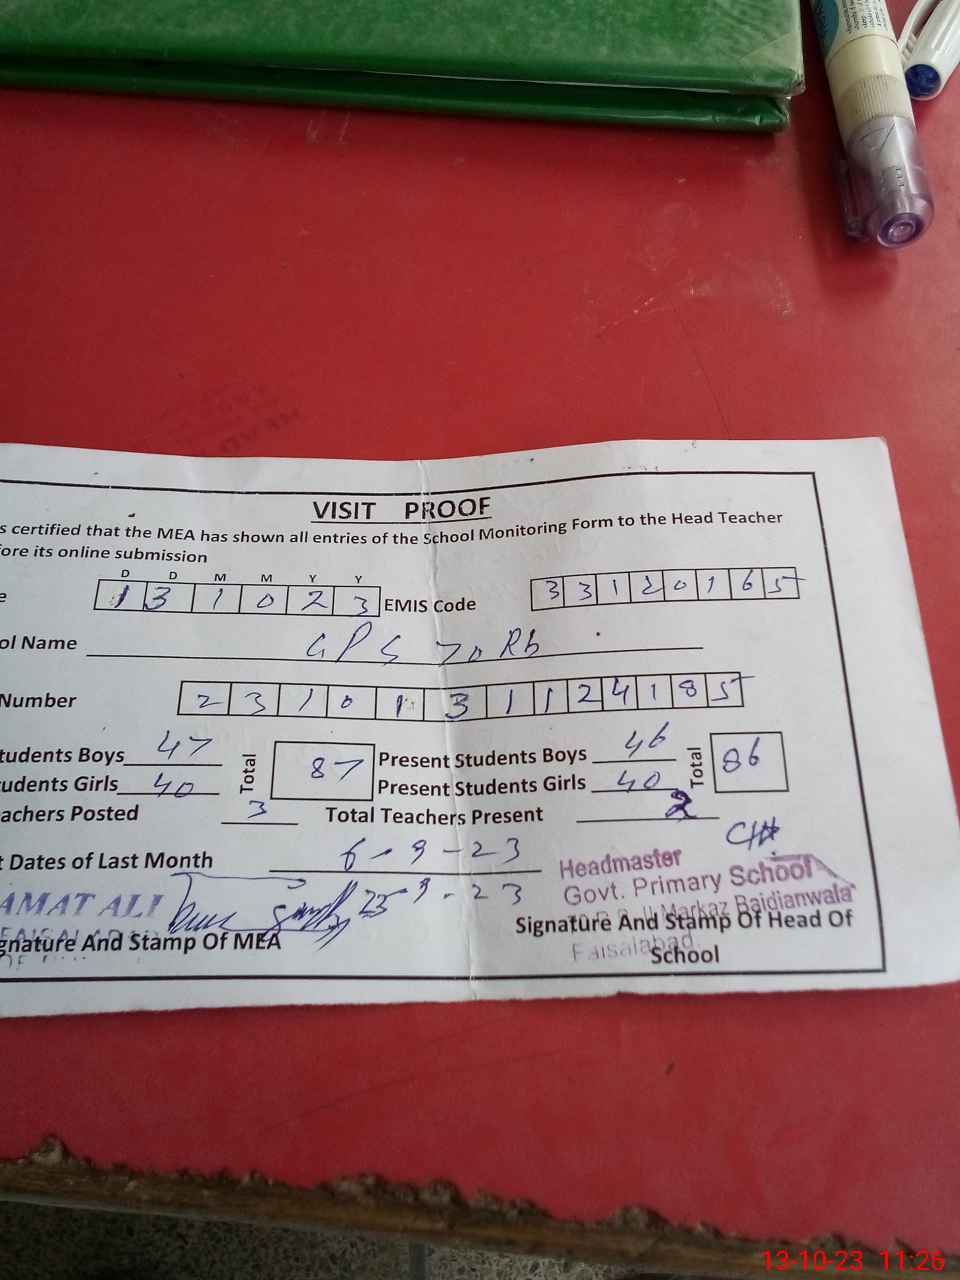 VISIT PROOF
s certified that the MEA has shown all entries of the School Monitoring Form to the Head Teacher
ore its online submission
D D M M Y Y
e 1 3 1 0 2 3 EMIS Code 3 3 1 2 0 1 6 5
ol Name GPS 70 Rb
Number 2 3 1 0 1 3 1 1 2 4 1 8 5
tudents Boys 47 Total 87 Present Students Boys 46 Total 86
udents Girls 40 Present Students Girls 40
achers Posted 3 Total Teachers Present 2
t Dates of Last Month 6-9-23
25-9-23
AMAT ALI
Headmaster
Govt. Primary School
Markaz Bajdianwala
Faisalabad
gnature And Stamp Of MEA
Signature And Stamp Of Head Of
School
13-10-23 11:26